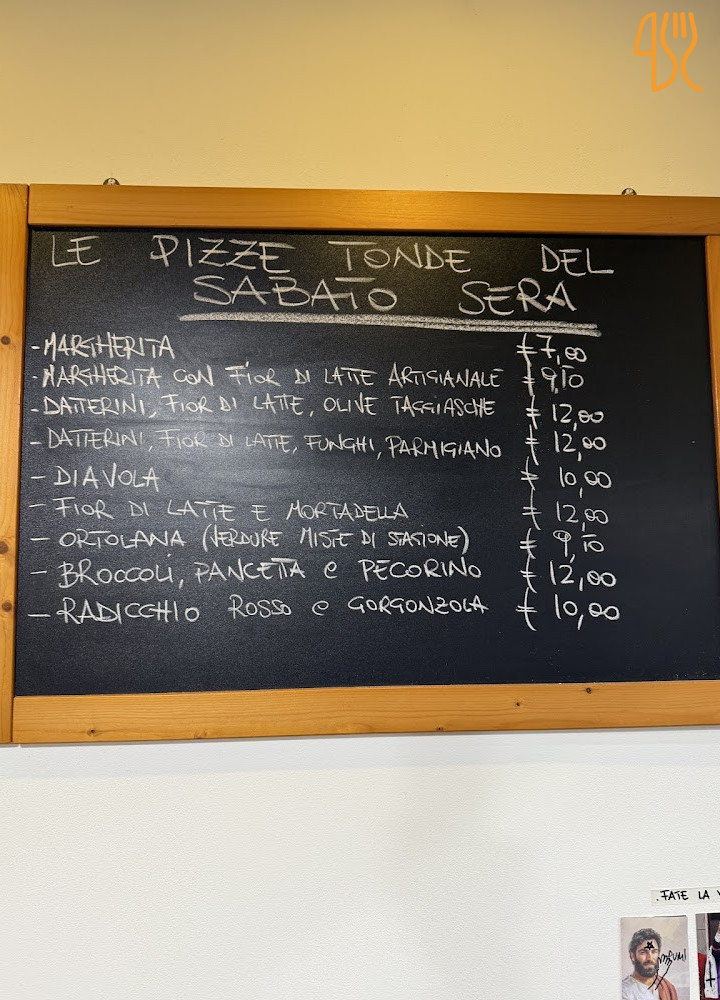 LE PIZZE TONDE DEL
SABATO SERA
- MARGHERITA € 7,00
- MARGHERITA CON FIOR DI LATTE ARTIGIANALE € 9,50
- DATTERINI, FIOR DI LATTE, OLIVE TAGGIASCHE € 12,00
- DATTERINI, FIOR DI LATTE, FUNGHI, PARMIGIANO € 12,00
- DIAVOLA € 10,00
- FIOR DI LATTE E MORTADELLA € 12,00
- ORTOLANA (VERDURE MISTE DI STAGIONE) € 9,50
- BROCCOLI, PANCETTA e PECORINO € 12,00
- RADICCHIO ROSSO e GORGONZOLA € 10,00
. FATE LA